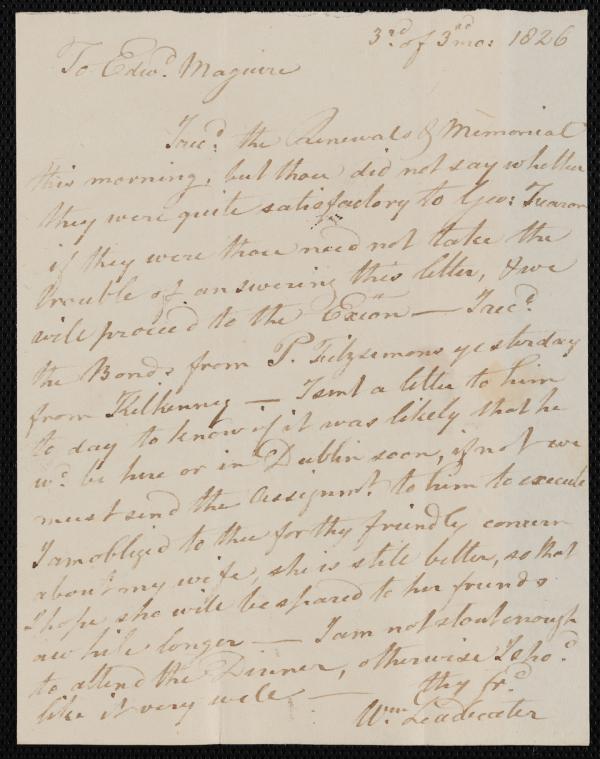 3rd of 3rd mo: 1826
To Edwd. Maguire
I recd. the Renewals & Memorial
this morning, but thou did not say whether
they were quite satisfactory to Geo:
if they were thou need not take the
trouble of answering this letter, & we
will proceed to the Exion — I recd.
the Bonds from P. Fitzsimons yesterday
from Kilkenny — I sent a letter to him
to day to know if it was likely that he
wd. be here or in Dublin soon, if not we
must send the Assignmt. to him to execute
I am obliged to thee for thy friendly concern
about my wife, she is still better, so that
I hope she will be spared to her friends
a while longer — I am not stout enough
to attend the Dinner, otherwise I shod.
like it very well —
thy frd.
Wm. Leadbeater